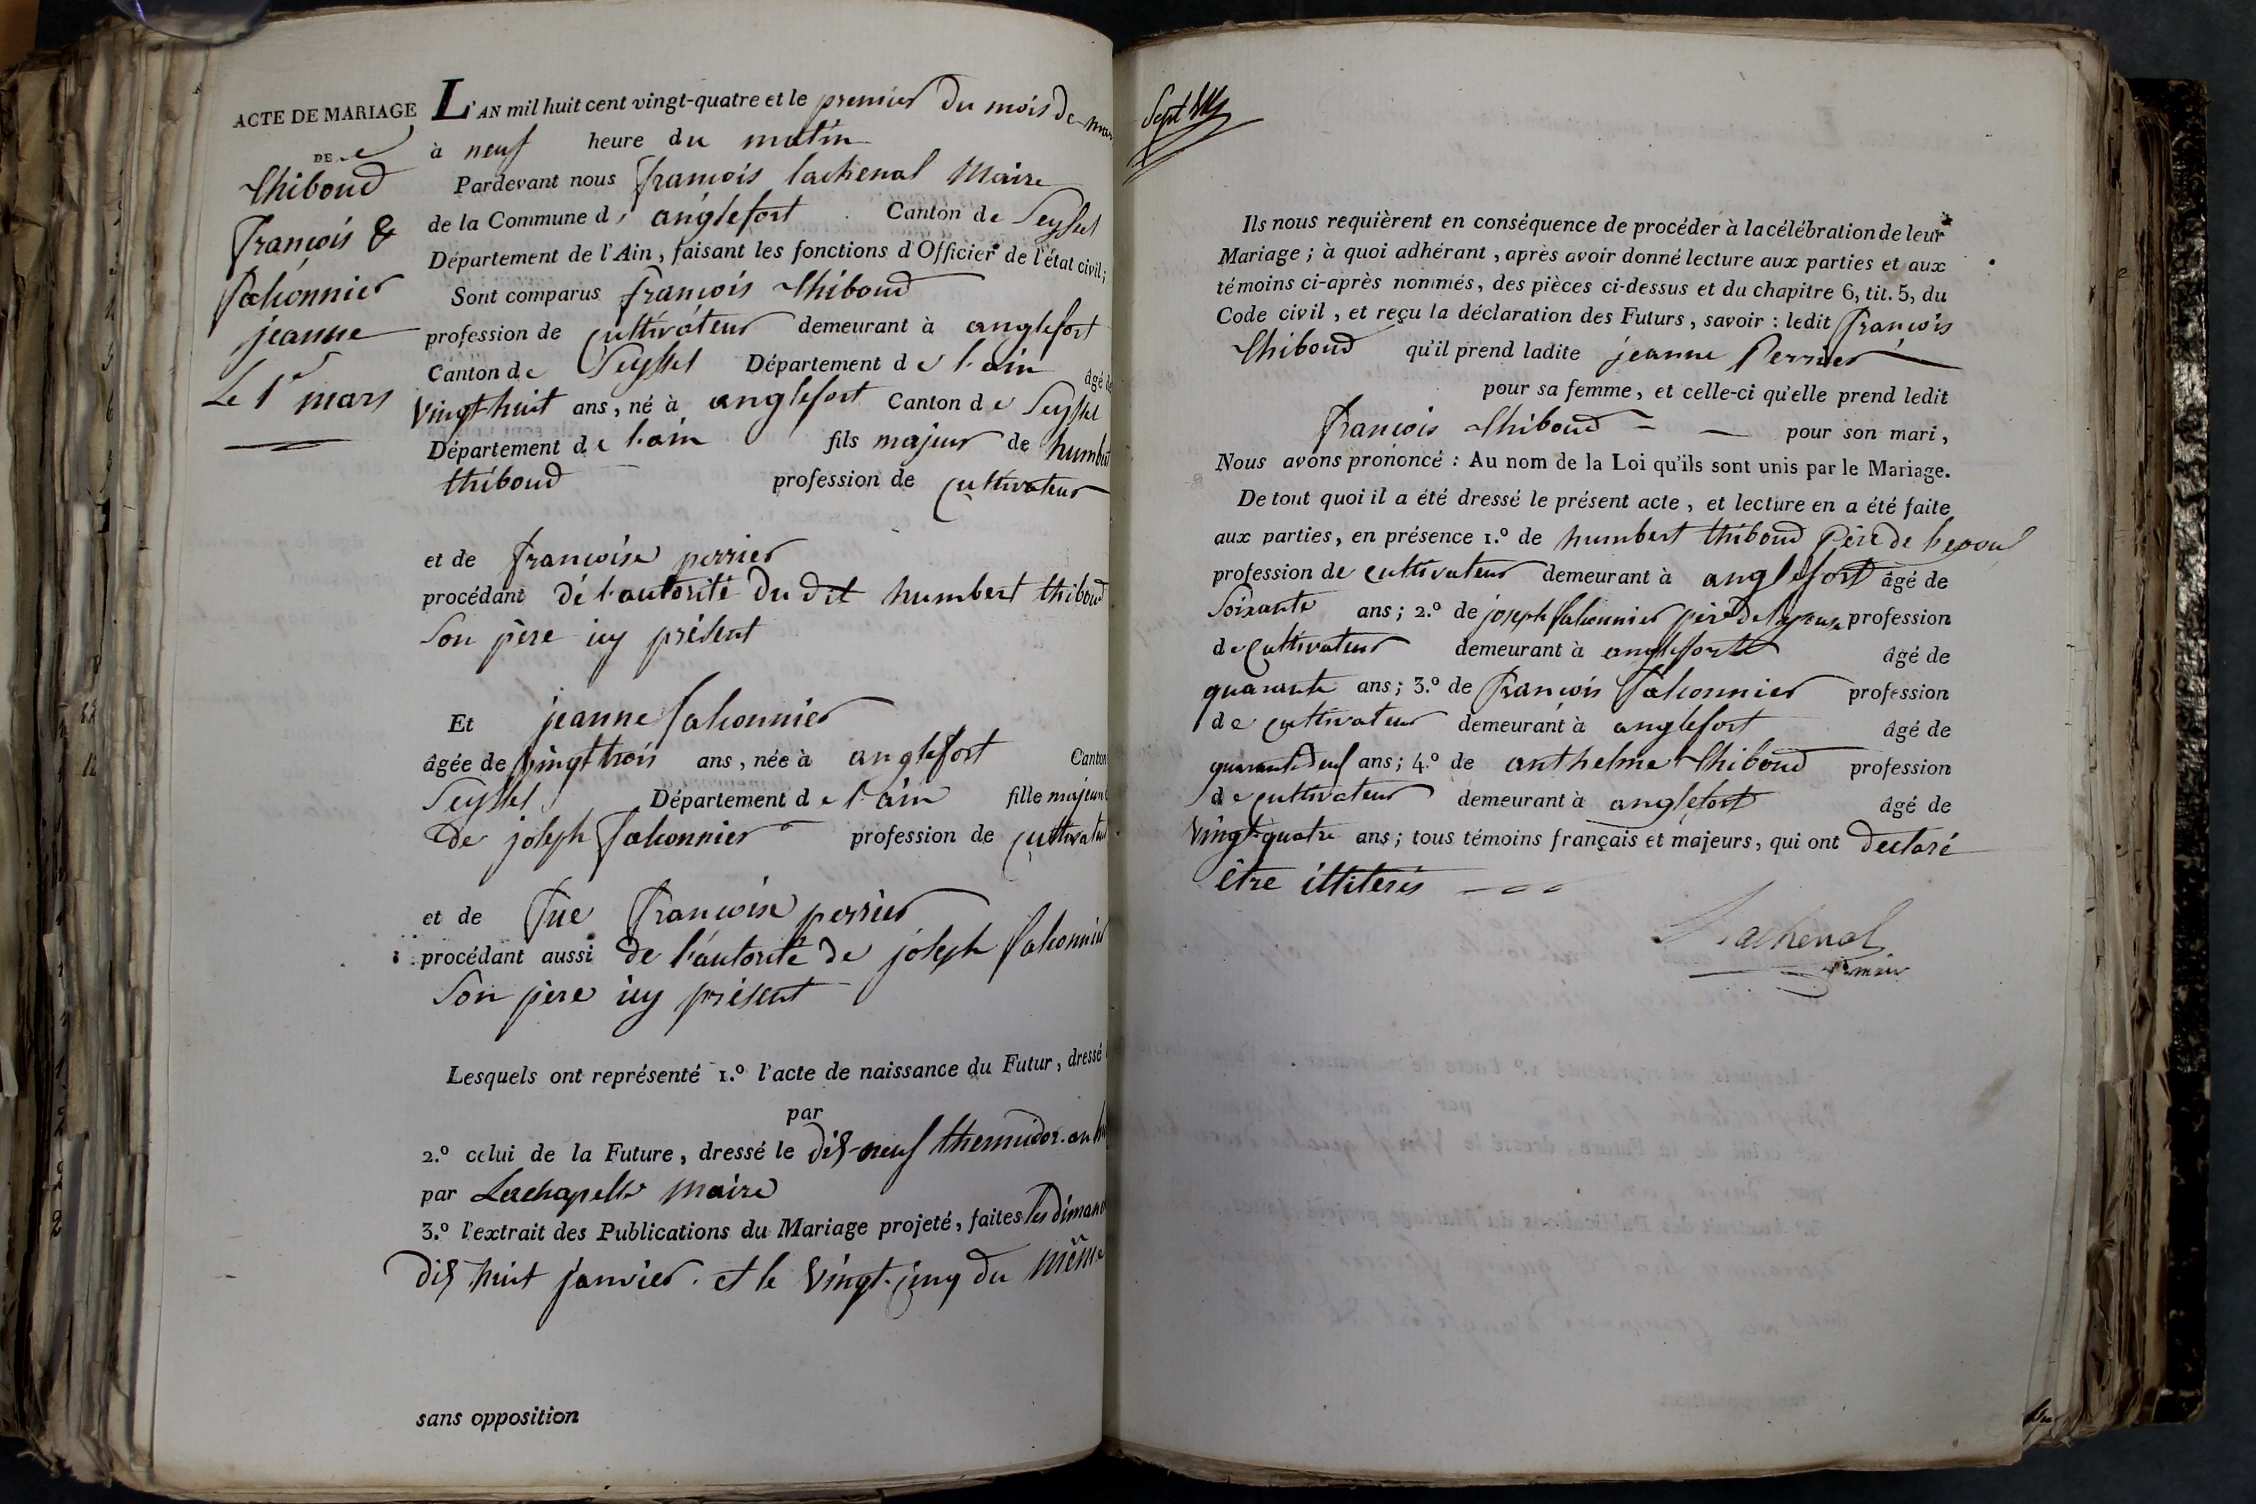 ACTE DE MARIAGE
DE
Thiboud
françois &
falconnier
jeanne
Le 1r mars
L'AN mil huit cent vingt-quatre et le premier du mois de mars
à neuf heure du matin
Pardevant nous françois lachenal Maire
de la Commune d' anglefort Canton de Seyssel
Département de l'Ain, faisant les fonctions d'Officier de l'état civil;
Sont comparus françois thiboud
profession de cultivateur demeurant à anglefort
Canton de Seyssel Département de l'ain âgé de
vingt-huit ans, né à anglefort Canton de Seyssel
Département de l'ain fils majeur de humbert
thiboud profession de cultivateur
et de françoise perrier
procédant de l'autorité du dit humbert thiboud
Son père icy présent
Et jeanne falconnier
âgée de vingt trois ans, née à anglefort Canton
Seyssel Département de l'ain fille majeure
de joseph falconnier profession de cultivateur
et de fue françoise perrier
procédant aussi de l'autorité de joseph falconnier
Son père icy présent
Lesquels ont représenté 1.º l'acte de naissance du Futur, dressé
par
2.º celui de la Future, dressé le dix-neuf thermidor an
par Lachapelle maire
3.º l'extrait des Publications du Mariage projeté, faites les dimanc
dix huit janvier et le vingt-cinq du même
sans opposition
Sept
Ils nous requièrent en conséquence de procéder à la célébration de leur
Mariage; à quoi adhérant, après avoir donné lecture aux parties et aux
témoins ci-après nommés, des pièces ci-dessus et du chapitre 6, tit. 5, du
Code civil, et reçu la déclaration des Futurs, savoir: ledit françois
thiboud qu'il prend ladite jeanne Perrier
pour sa femme, et celle-ci qu'elle prend ledit
françois thiboud pour son mari,
Nous avons prononcé: Au nom de la Loi qu'ils sont unis par le Mariage.
De tout quoi il a été dressé le présent acte, et lecture en a été faite
aux parties, en présence 1.º de humbert thiboud Père de l'epoux
profession de cultivateur demeurant à anglefort âgé de
Soixante ans; 2.º de joseph falconnier père de lepouse profession
de cultivateur demeurant à anglefort âgé de
quarante ans; 3.º de françois falconnier profession
de cultivateur demeurant à anglefort âgé de
quarante deux ans; 4.º de anthelme thiboud profession
de cultivateur demeurant à anglefort âgé de
vingt-quatre ans; tous témoins français et majeurs, qui ont declaré
être illiterés
Lachenal
maire